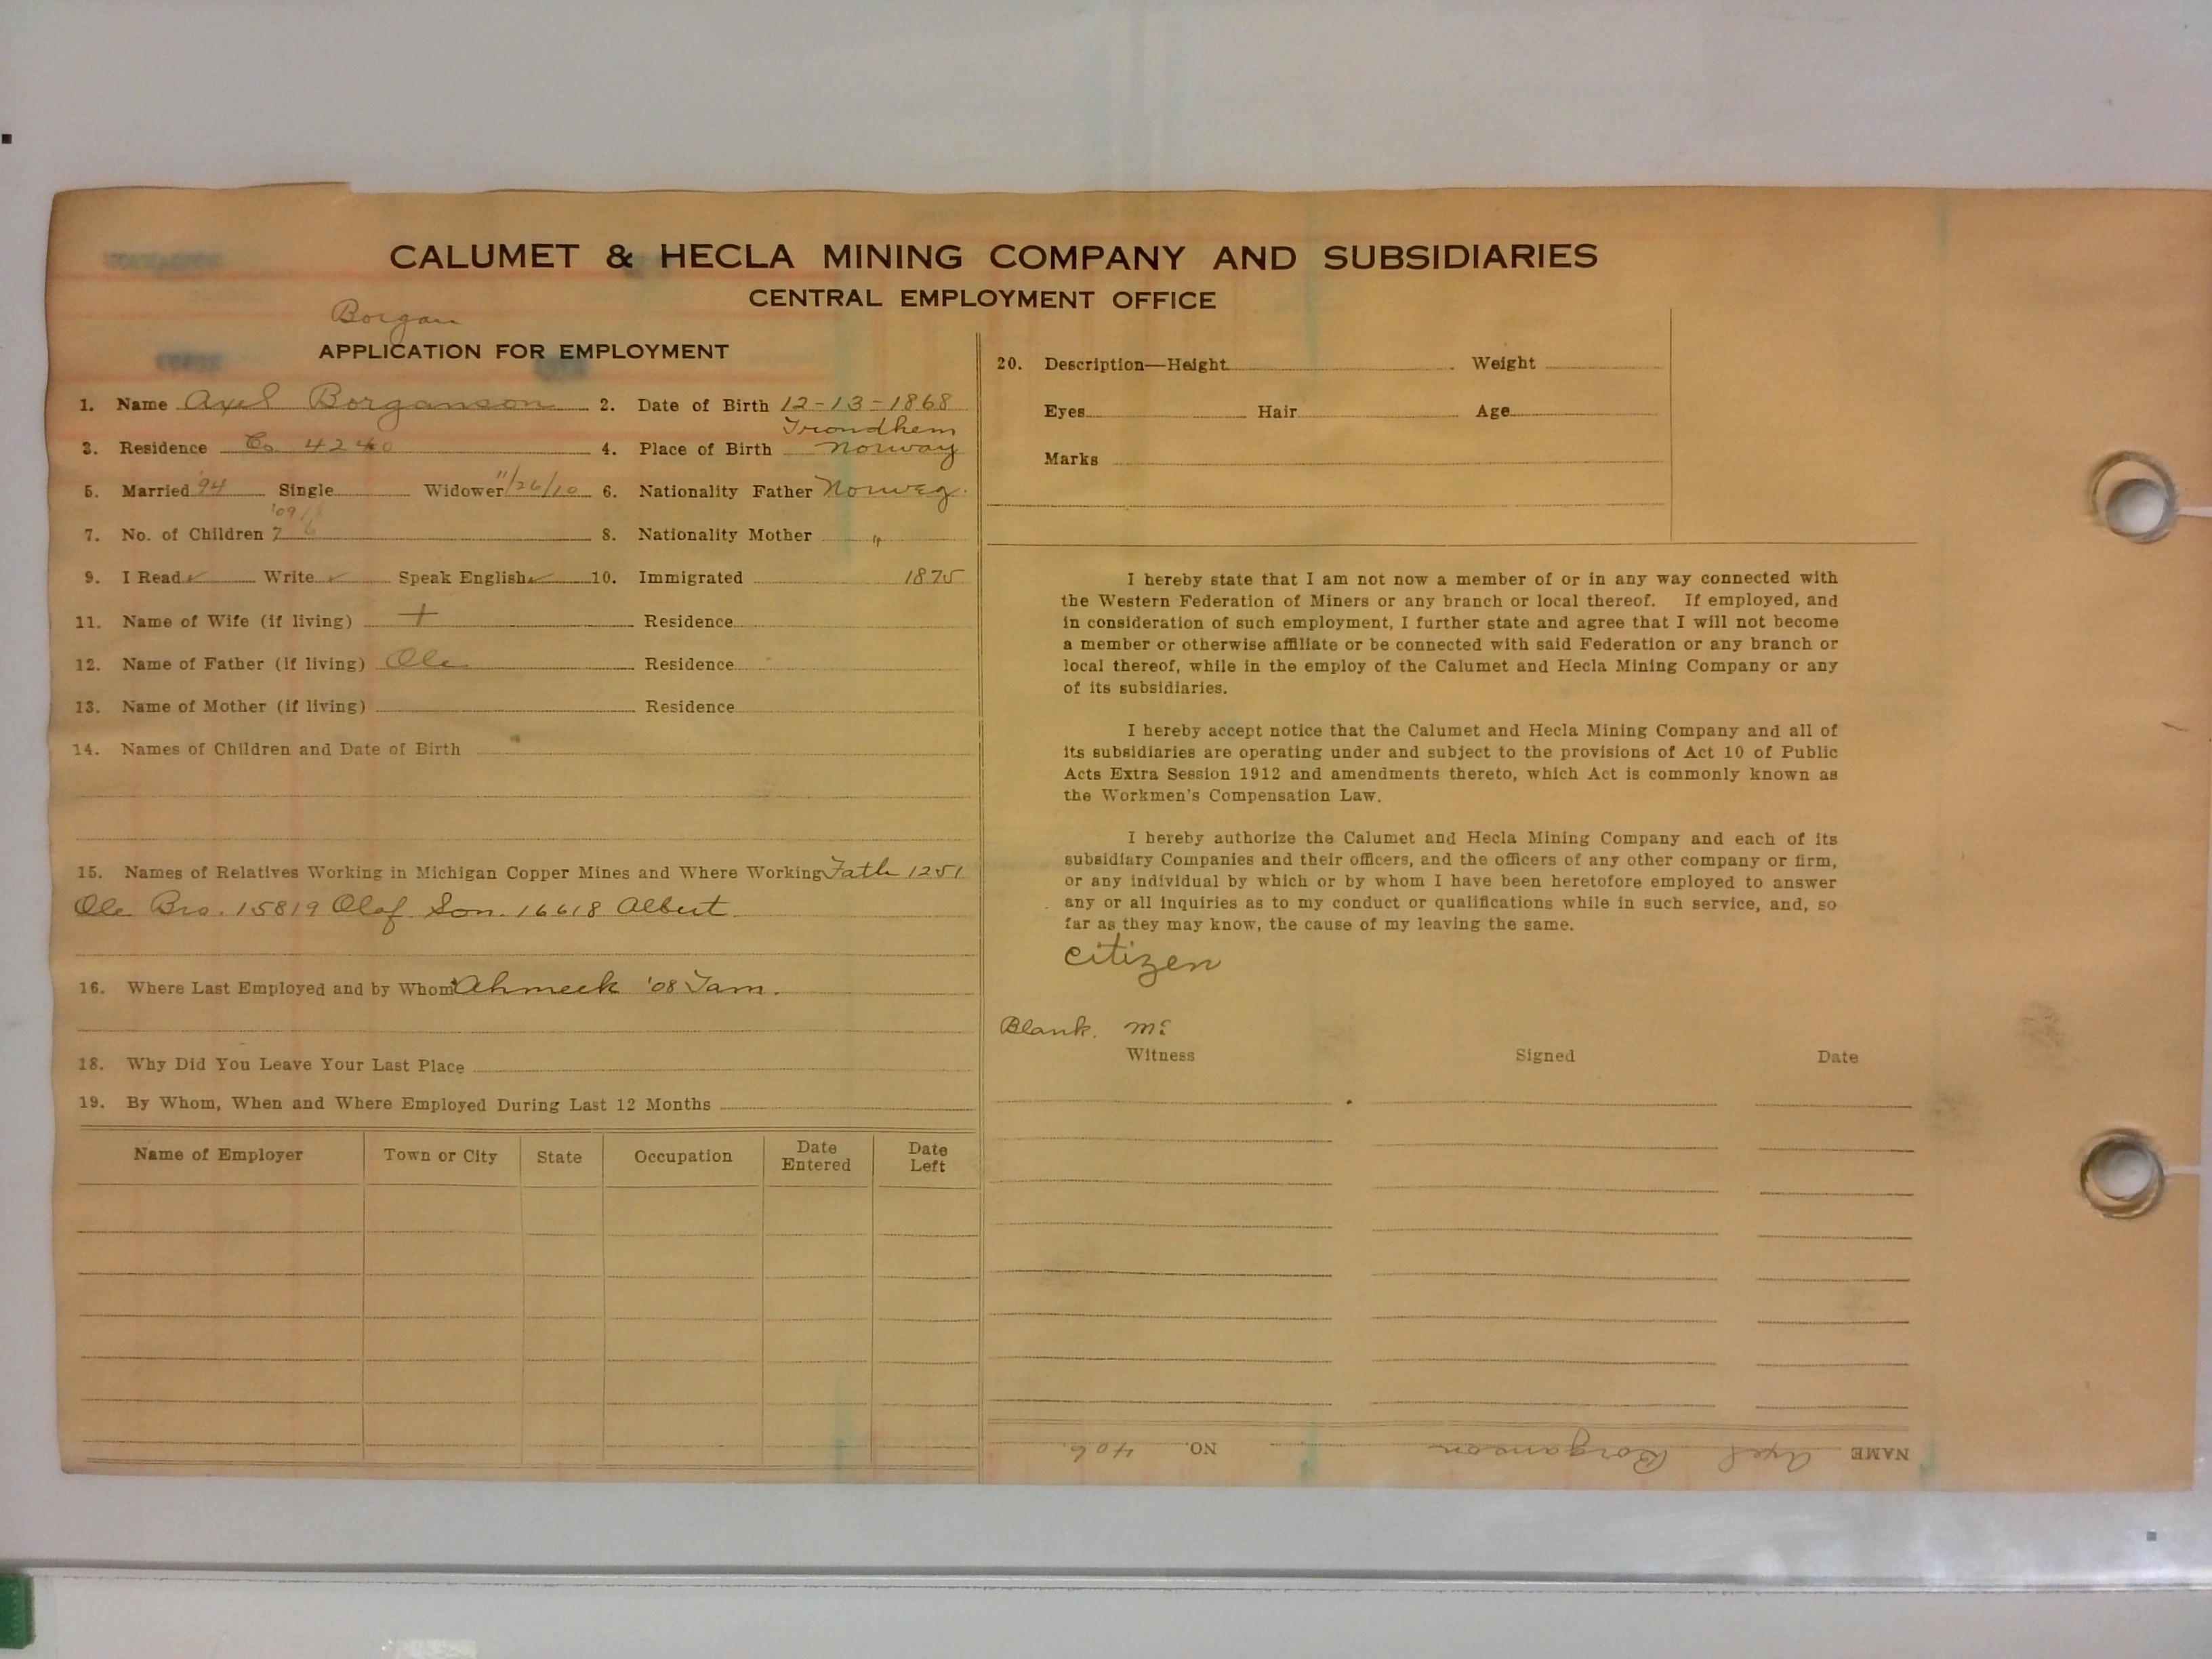 CALUMET & HECLA MINING COMPANY AND SUBSIDIARIES
CENTRAL EMPLOYMENT OFFICE
Borgan
APPLICATION FOR EMPLOYMENT
1. Name Axel Borganson 2. Date of Birth 12-13-1868
Trondhem
3. Residence Co. 4240 4. Place of Birth Norway
5. Married '94 Single Widower 11/26/10 6. Nationality Father Norweg.
'09
7. No. of Children 7 6 8. Nationality Mother "
9. I Read ✓ Write ✓ Speak English ✓ 10. Immigrated 1875
11. Name of Wife (if living) + Residence
12. Name of Father (if living) Ole Residence
13. Name of Mother (if living) Residence
14. Names of Children and Date of Birth
15. Names of Relatives Working in Michigan Copper Mines and Where Working Fath 1251
Ole Bro. 15819 Olof Son. 16618 Albert
16. Where Last Employed and by Whom Ahmeek '08 Tam.
18. Why Did You Leave Your Last Place
19. By Whom, When and Where Employed During Last 12 Months
Name of Employer Town or City State Occupation Date Entered Date Left
20. Description—Height Weight
Eyes Hair Age
Marks
I hereby state that I am not now a member of or in any way connected with
the Western Federation of Miners or any branch or local thereof. If employed, and
in consideration of such employment, I further state and agree that I will not become
a member or otherwise affiliate or be connected with said Federation or any branch or
local thereof, while in the employ of the Calumet and Hecla Mining Company or any
of its subsidiaries.
I hereby accept notice that the Calumet and Hecla Mining Company and all of
its subsidiaries are operating under and subject to the provisions of Act 10 of Public
Acts Extra Session 1912 and amendments thereto, which Act is commonly known as
the Workmen's Compensation Law.
I hereby authorize the Calumet and Hecla Mining Company and each of its
subsidiary Companies and their officers, and the officers of any other company or firm,
or any individual by which or by whom I have been heretofore employed to answer
any or all inquiries as to my conduct or qualifications while in such service, and, so
far as they may know, the cause of my leaving the same.
citizen
Blank. Mc
Witness Signed Date
NAME Axel Borganson NO. 406